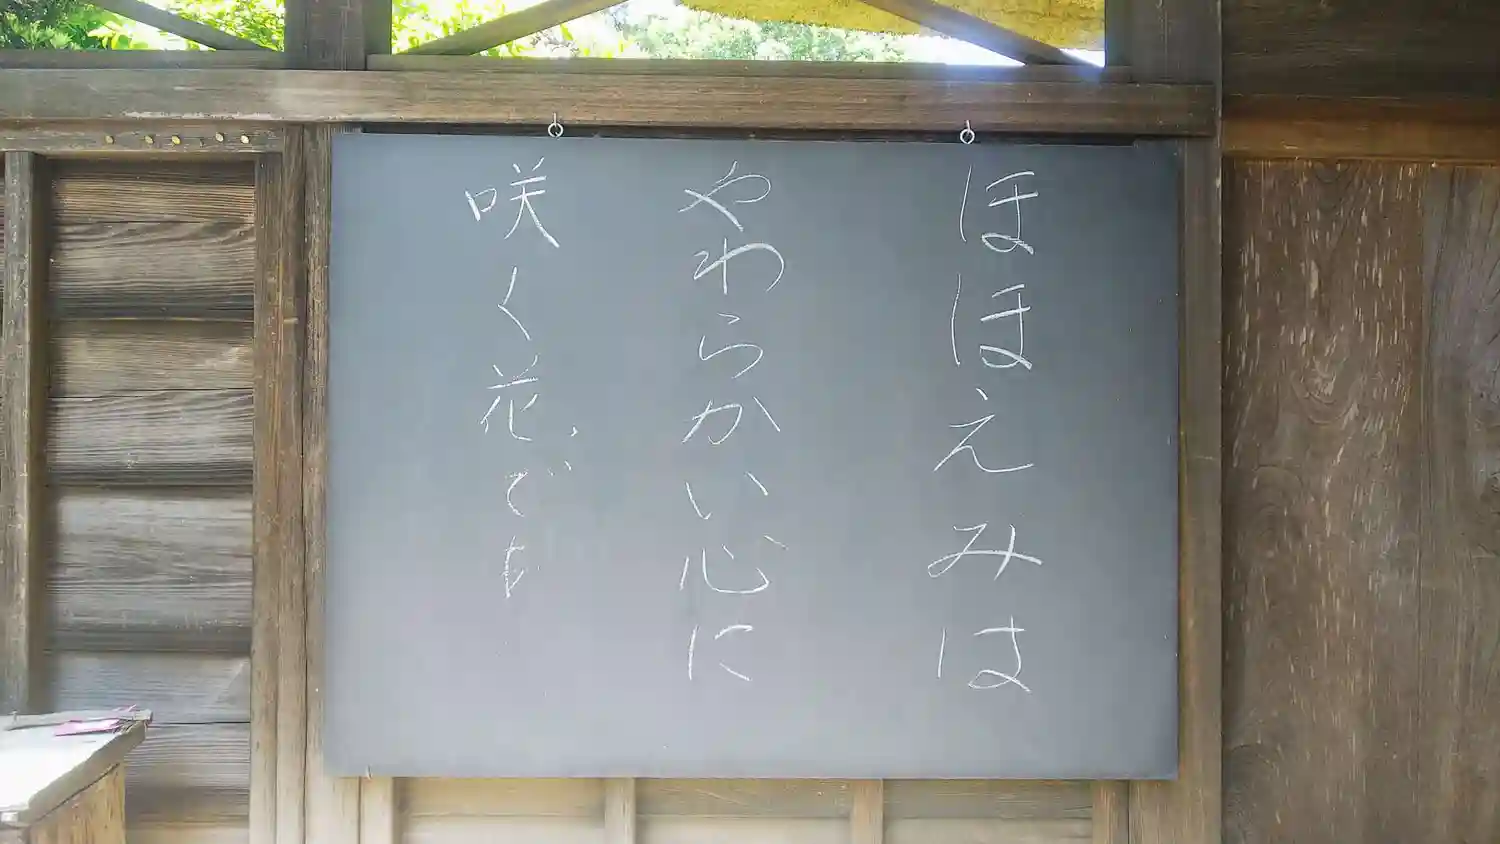 ほほえみは
やわらかい心に
咲く花、でも